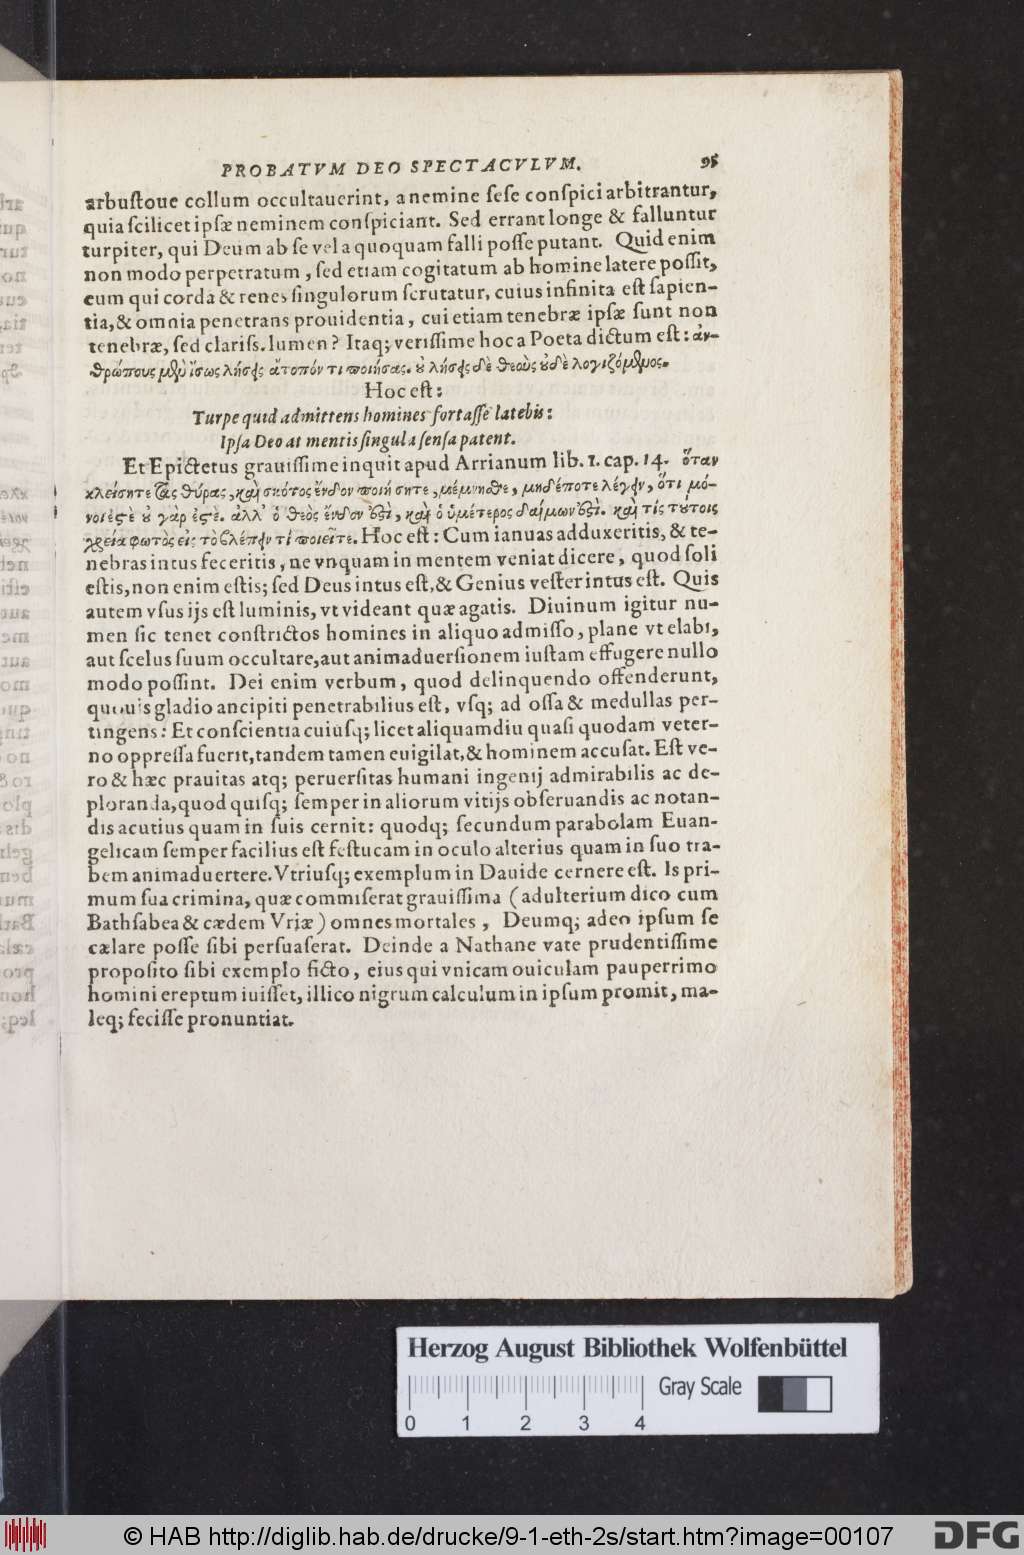 PROBATVM DEO SPECTACVLVM. 95
arbustoue collum occultauerint, a nemine sese conspici arbitrantur,
quia scilicet ipsæ neminem conspiciant. Sed errant longe & falluntur
turpiter, qui Deum ab se vel a quoquam falli posse putant. Quid enim
non modo perpetratum, sed etiam cogitatum ab homine latere possit,
eum qui corda & renes singulorum scrutatur, cuius infinita est sapien-
tia, & omnia penetrans prouidentia, cui etiam tenebræ ipsæ sunt non
tenebræ, sed clariss. lumen? Itaq; verissime hoc a Poeta dictum est: ἀν-
θρώπους μὲν ἴσως λήσεις ἄτοπόν τι ποιήσας. οὐ λήσεις δὲ θεοὺς οὐδὲ λογιζόμενος.
Hoc est:
Turpe quid admittens homines fortasse latebis:
Ipsa Deo at mentis singula sensa patent.
Et Epictetus grauissime inquit apud Arrianum lib. 1. cap. 14. ὅταν
κλείσητε τὰς θύρας, καὶ σκότος ἔνδον ποιήσητε, μέμνησθε, μηδέποτε λέγειν, ὅτι μό-
νοι ἐστὲ οὐ γὰρ ἐστέ. ἀλλ' ὁ θεὸς ἔνδον ἐστὶ, καὶ ὁ ὑμέτερος δαίμων ἐστὶ. καὶ τίς τούτοις
χρεία φωτὸς εἰς τὸ βλέπειν τί ποιεῖτε. Hoc est: Cum ianuas adduxeritis, & te-
nebras intus feceritis, ne vnquam in mentem veniat dicere, quod soli
estis, non enim estis; sed Deus intus est, & Genius vester intus est. Quis
autem vsus ijs est luminis, vt videant quæ agatis. Diuinum igitur nu-
men sic tenet constrictos homines in aliquo admisso, plane vt elabi,
aut scelus suum occultare, aut animaduersionem iustam effugere nullo
modo possint. Dei enim verbum, quod delinquendo offenderunt,
quouis gladio ancipiti penetrabilius est, vsq; ad ossa & medullas per-
tingens: Et conscientia cuiusq; licet aliquamdiu quasi quodam veter-
no oppressa fuerit, tandem tamen euigilat, & hominem accusat. Est ve-
ro & hæc prauitas atq; peruersitas humani ingenij admirabilis ac de-
ploranda, quod quisq; semper in aliorum vitijs obseruandis ac notan-
dis acutius quam in suis cernit: quodq; secundum parabolam Euan-
gelicam semper facilius est festucam in oculo alterius quam in suo tra-
bem animaduertere. Vtriusq; exemplum in Dauide cernere est. Is pri-
mum sua crimina, quæ commiserat grauissima (adulterium dico cum
Bathsabea & cædem Vriæ) omnes mortales, Deumq; adeo ipsum se
cælare posse sibi persuaserat. Deinde a Nathane vate prudentissime
proposito sibi exemplo ficto, eius qui vnicam ouiculam pauperrimo
homini ereptum iuisset, illico nigrum calculum in ipsum promit, ma-
leq; fecisse pronuntiat.
Herzog August Bibliothek Wolfenbüttel
Gray Scale
0 1 2 3 4
© HAB http://diglib.hab.de/drucke/9-1-eth-2s/start.htm?image=00107
DFG